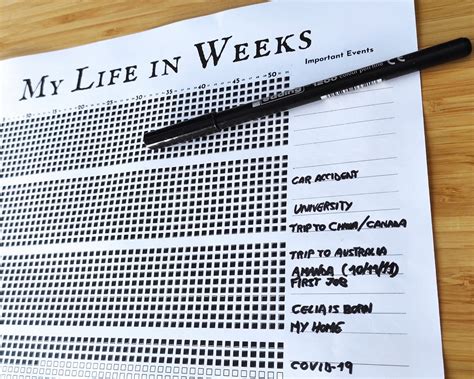 MY LIFE IN WEEKS
Important Events
10 15 20 25 30 35 40 45 50
CAR ACCIDENT
UNIVERSITY
TRIP TO CHINA/CANADA
TRIP TO AUSTRALIA
AMANDA (10/11/11)
FIRST JOB
CELIA IS BORN
MY HOME
COVID-19